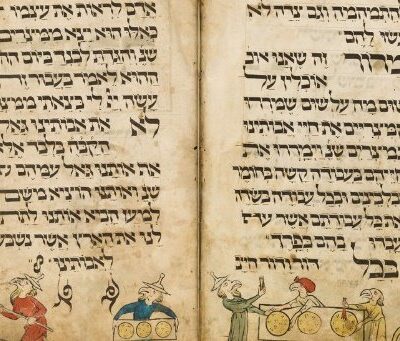 וגם צרה לא
עשו להם
מרור זה שאנו אוכ
אוכלין על
שום מה על שום שמררו
המצריים את חיי אבותינו
במצרים שנ וימררו את
חייהם בעבודה קשה בחומר
ובלבנים ובכל עבודה בשדה
את כל עבודתם אשר
עבדו בהם בפרך
בכל דור ודור חייב
אדם לראות את עצמו
כאלו הוא יצא ממצרים
שנ והגדת לבנך ביום
ההוא לאמר בעבור זה
עשה יי לי בצאתי ממצ
לא את אבותינו
הקבה בלבד אלא
את אותנו גאל עמהם
שנ ואותנו הוציא משם
למען הביא אותנו לתת
לנו את הארץ אשר נשבע
לאבותינו